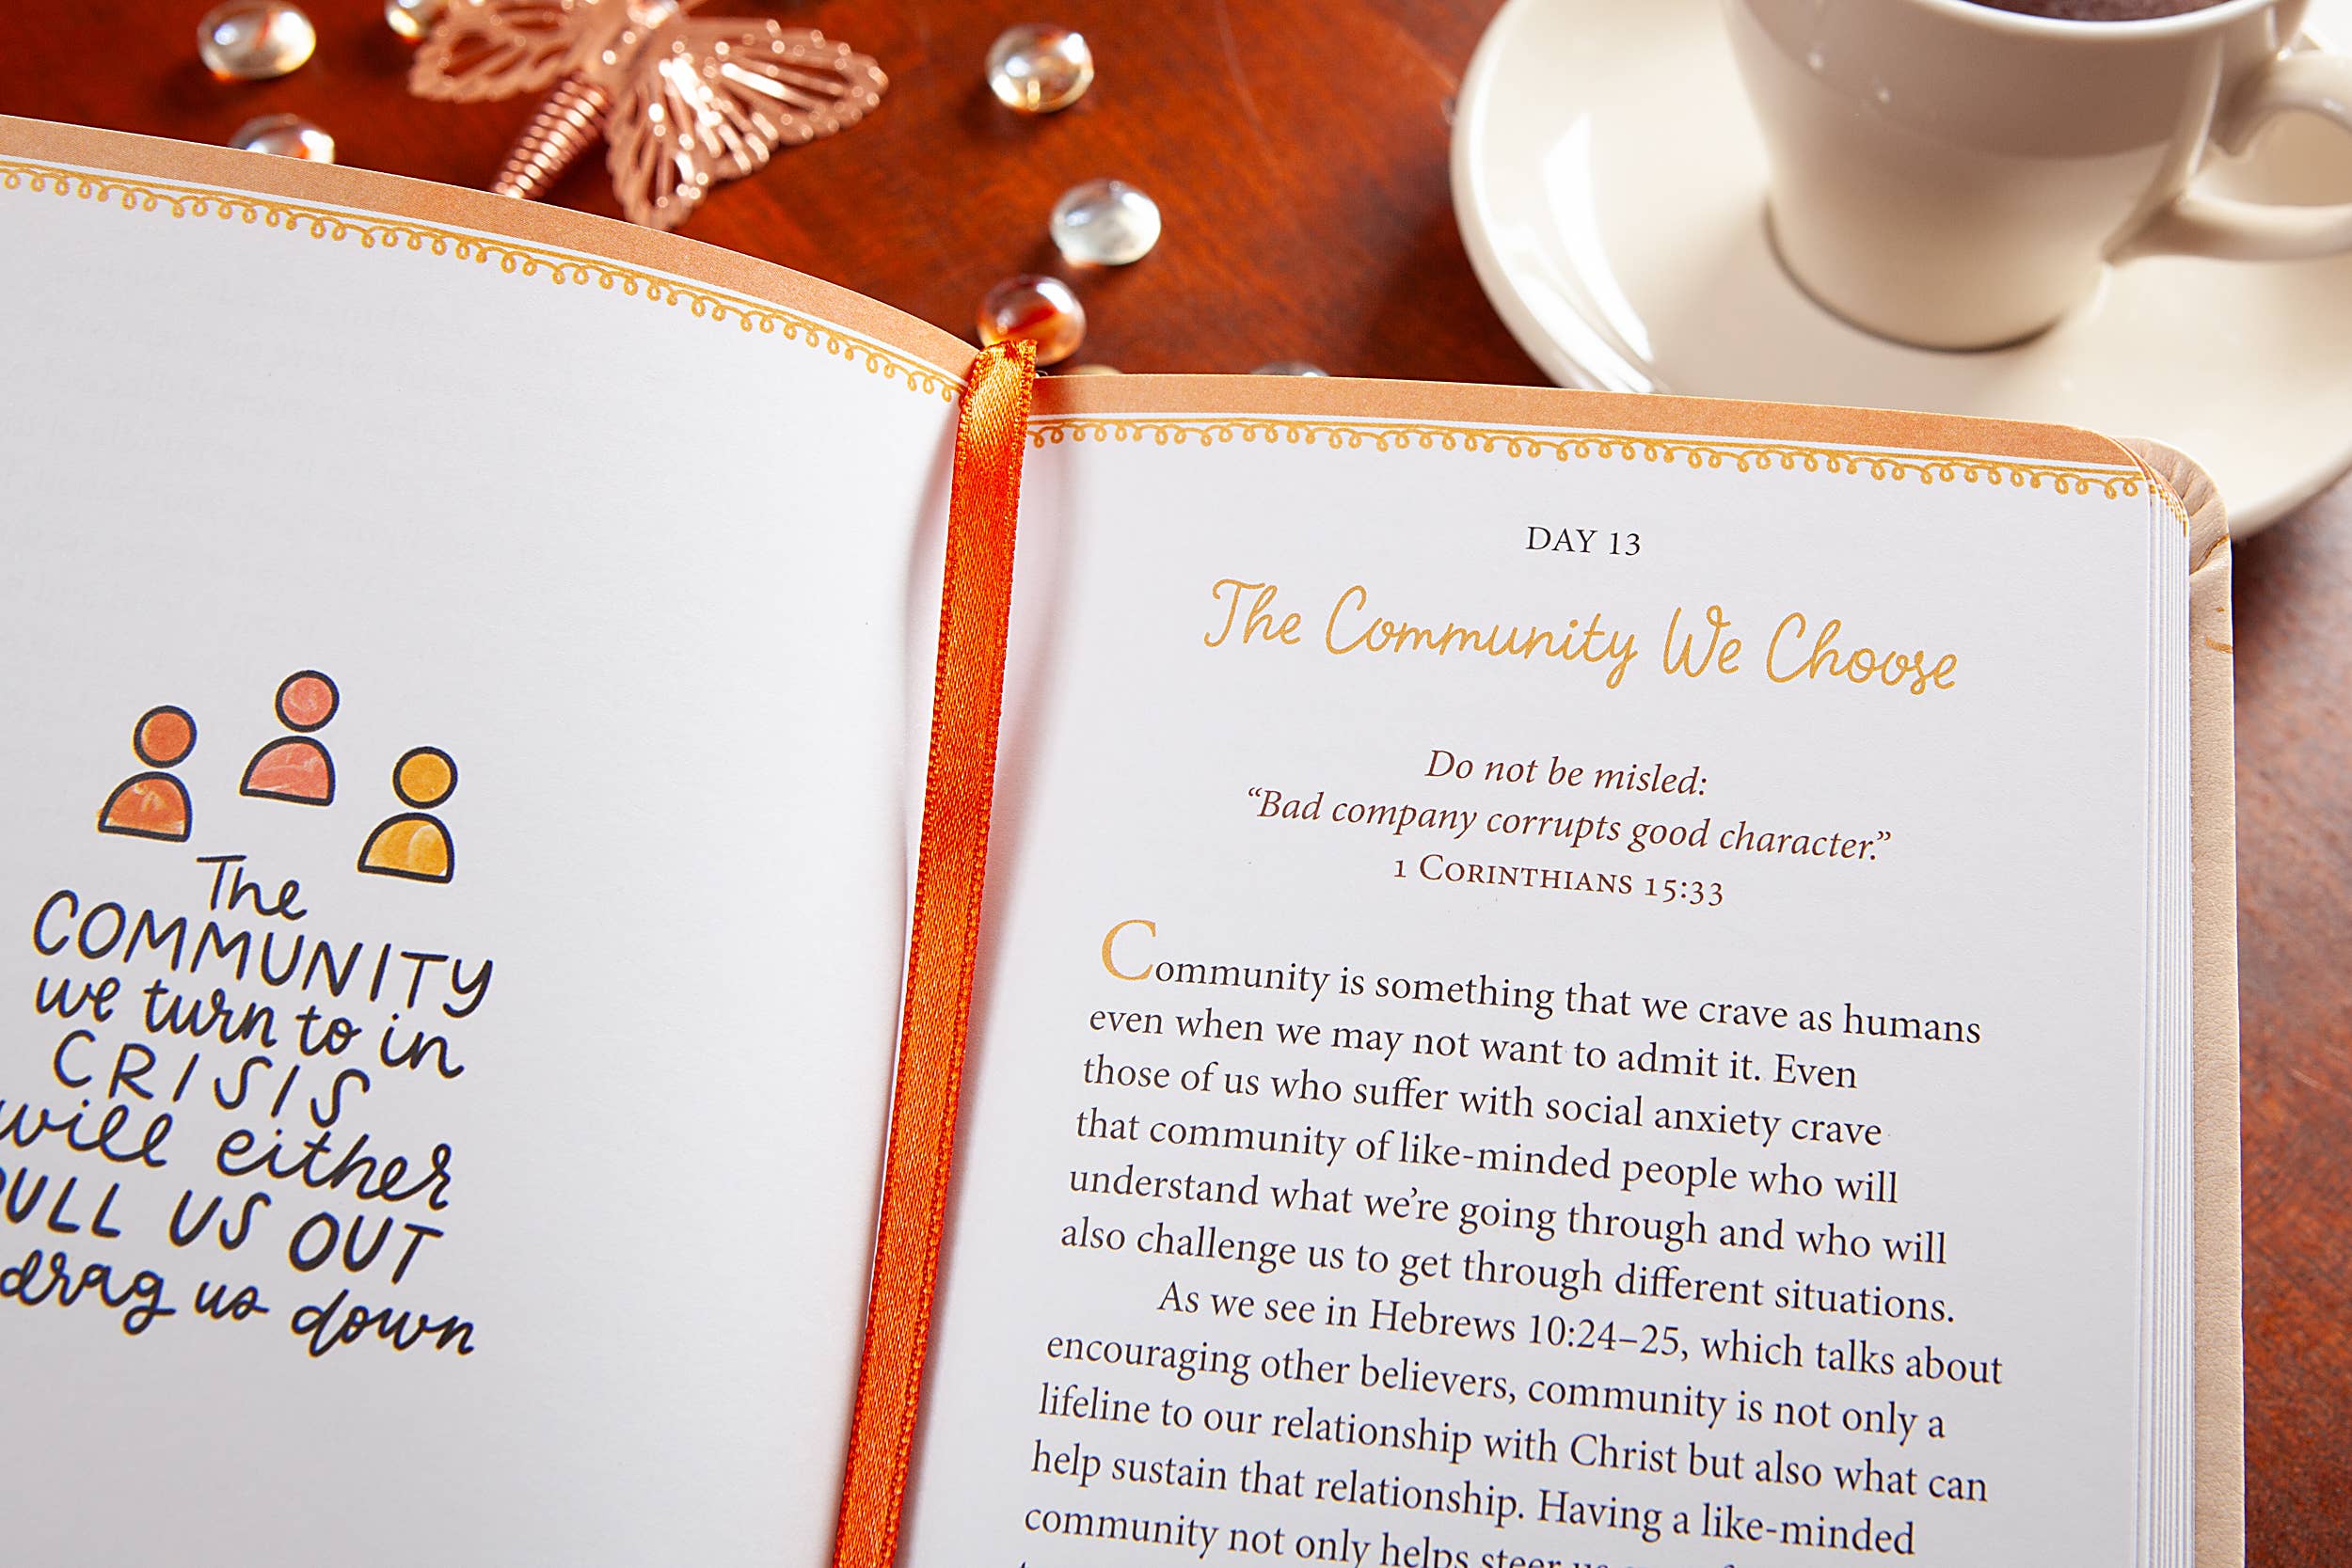 The
COMMUNITY
we turn to in
CRISIS
will either
PULL US OUT
drag us down
DAY 13
The Community We Choose
Do not be misled:
“Bad company corrupts good character.”
1 CORINTHIANS 15:33
Community is something that we crave as humans
even when we may not want to admit it. Even
those of us who suffer with social anxiety crave
that community of like-minded people who will
understand what we’re going through and who will
also challenge us to get through different situations.
As we see in Hebrews 10:24–25, which talks about
encouraging other believers, community is not only a
lifeline to our relationship with Christ but also what can
help sustain that relationship. Having a like-minded
community not only helps steer us